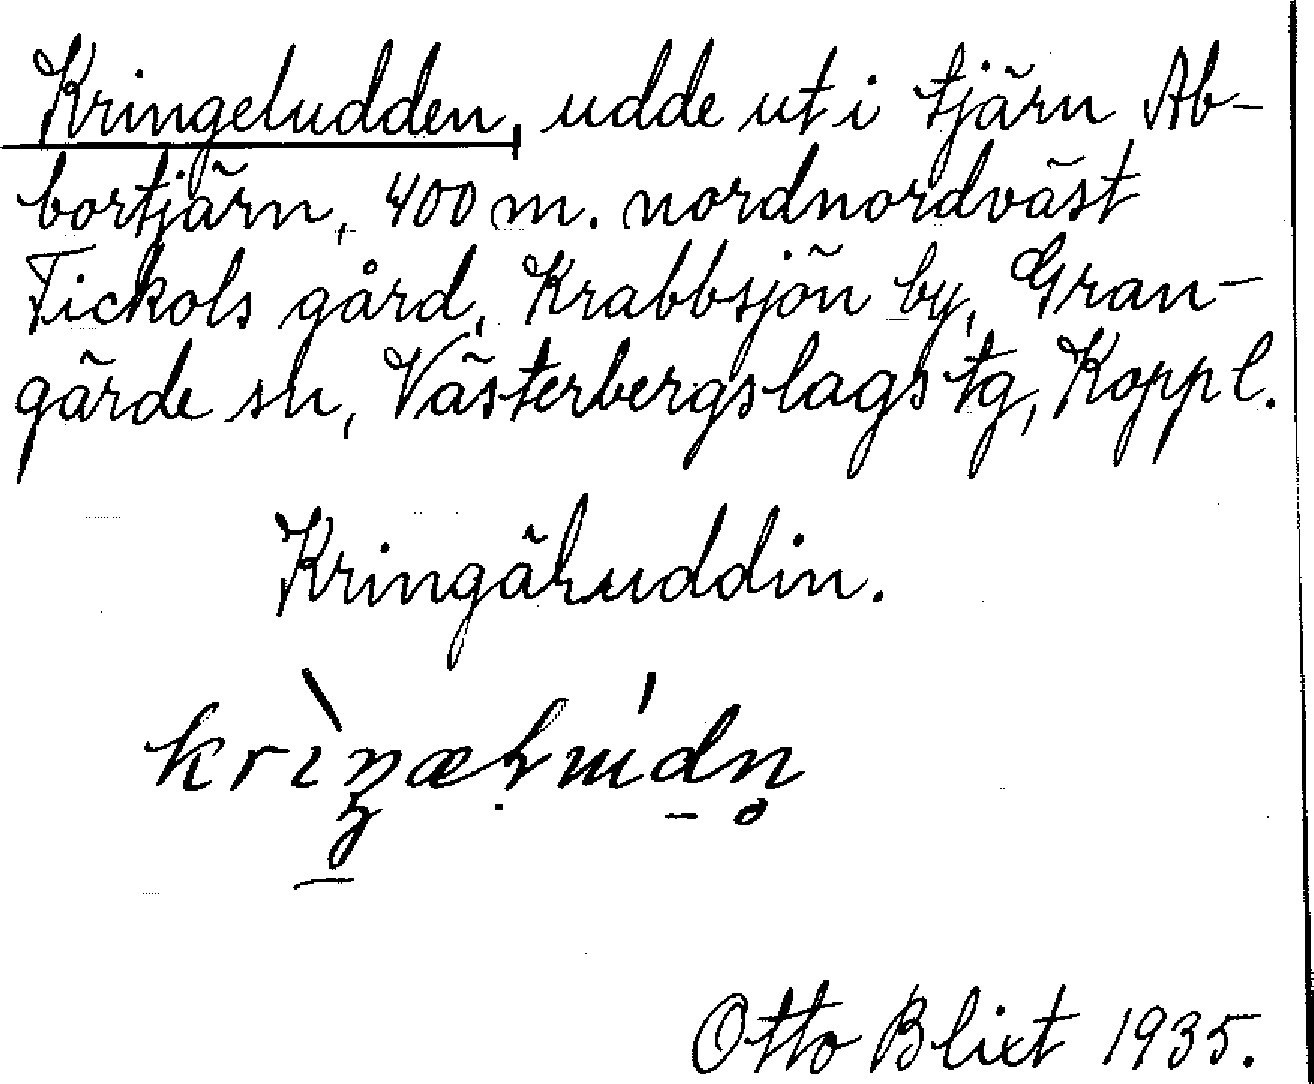 Kringeludden, udde ut i tjärn Ab-
bortjärn, 400 m. nordnordväst
Fickols gård, Krabbsjön by, Gran-
gärde sn, Västerbergslags tg, Koppl.
Kringäluddin.
Otto Blixt 1935.